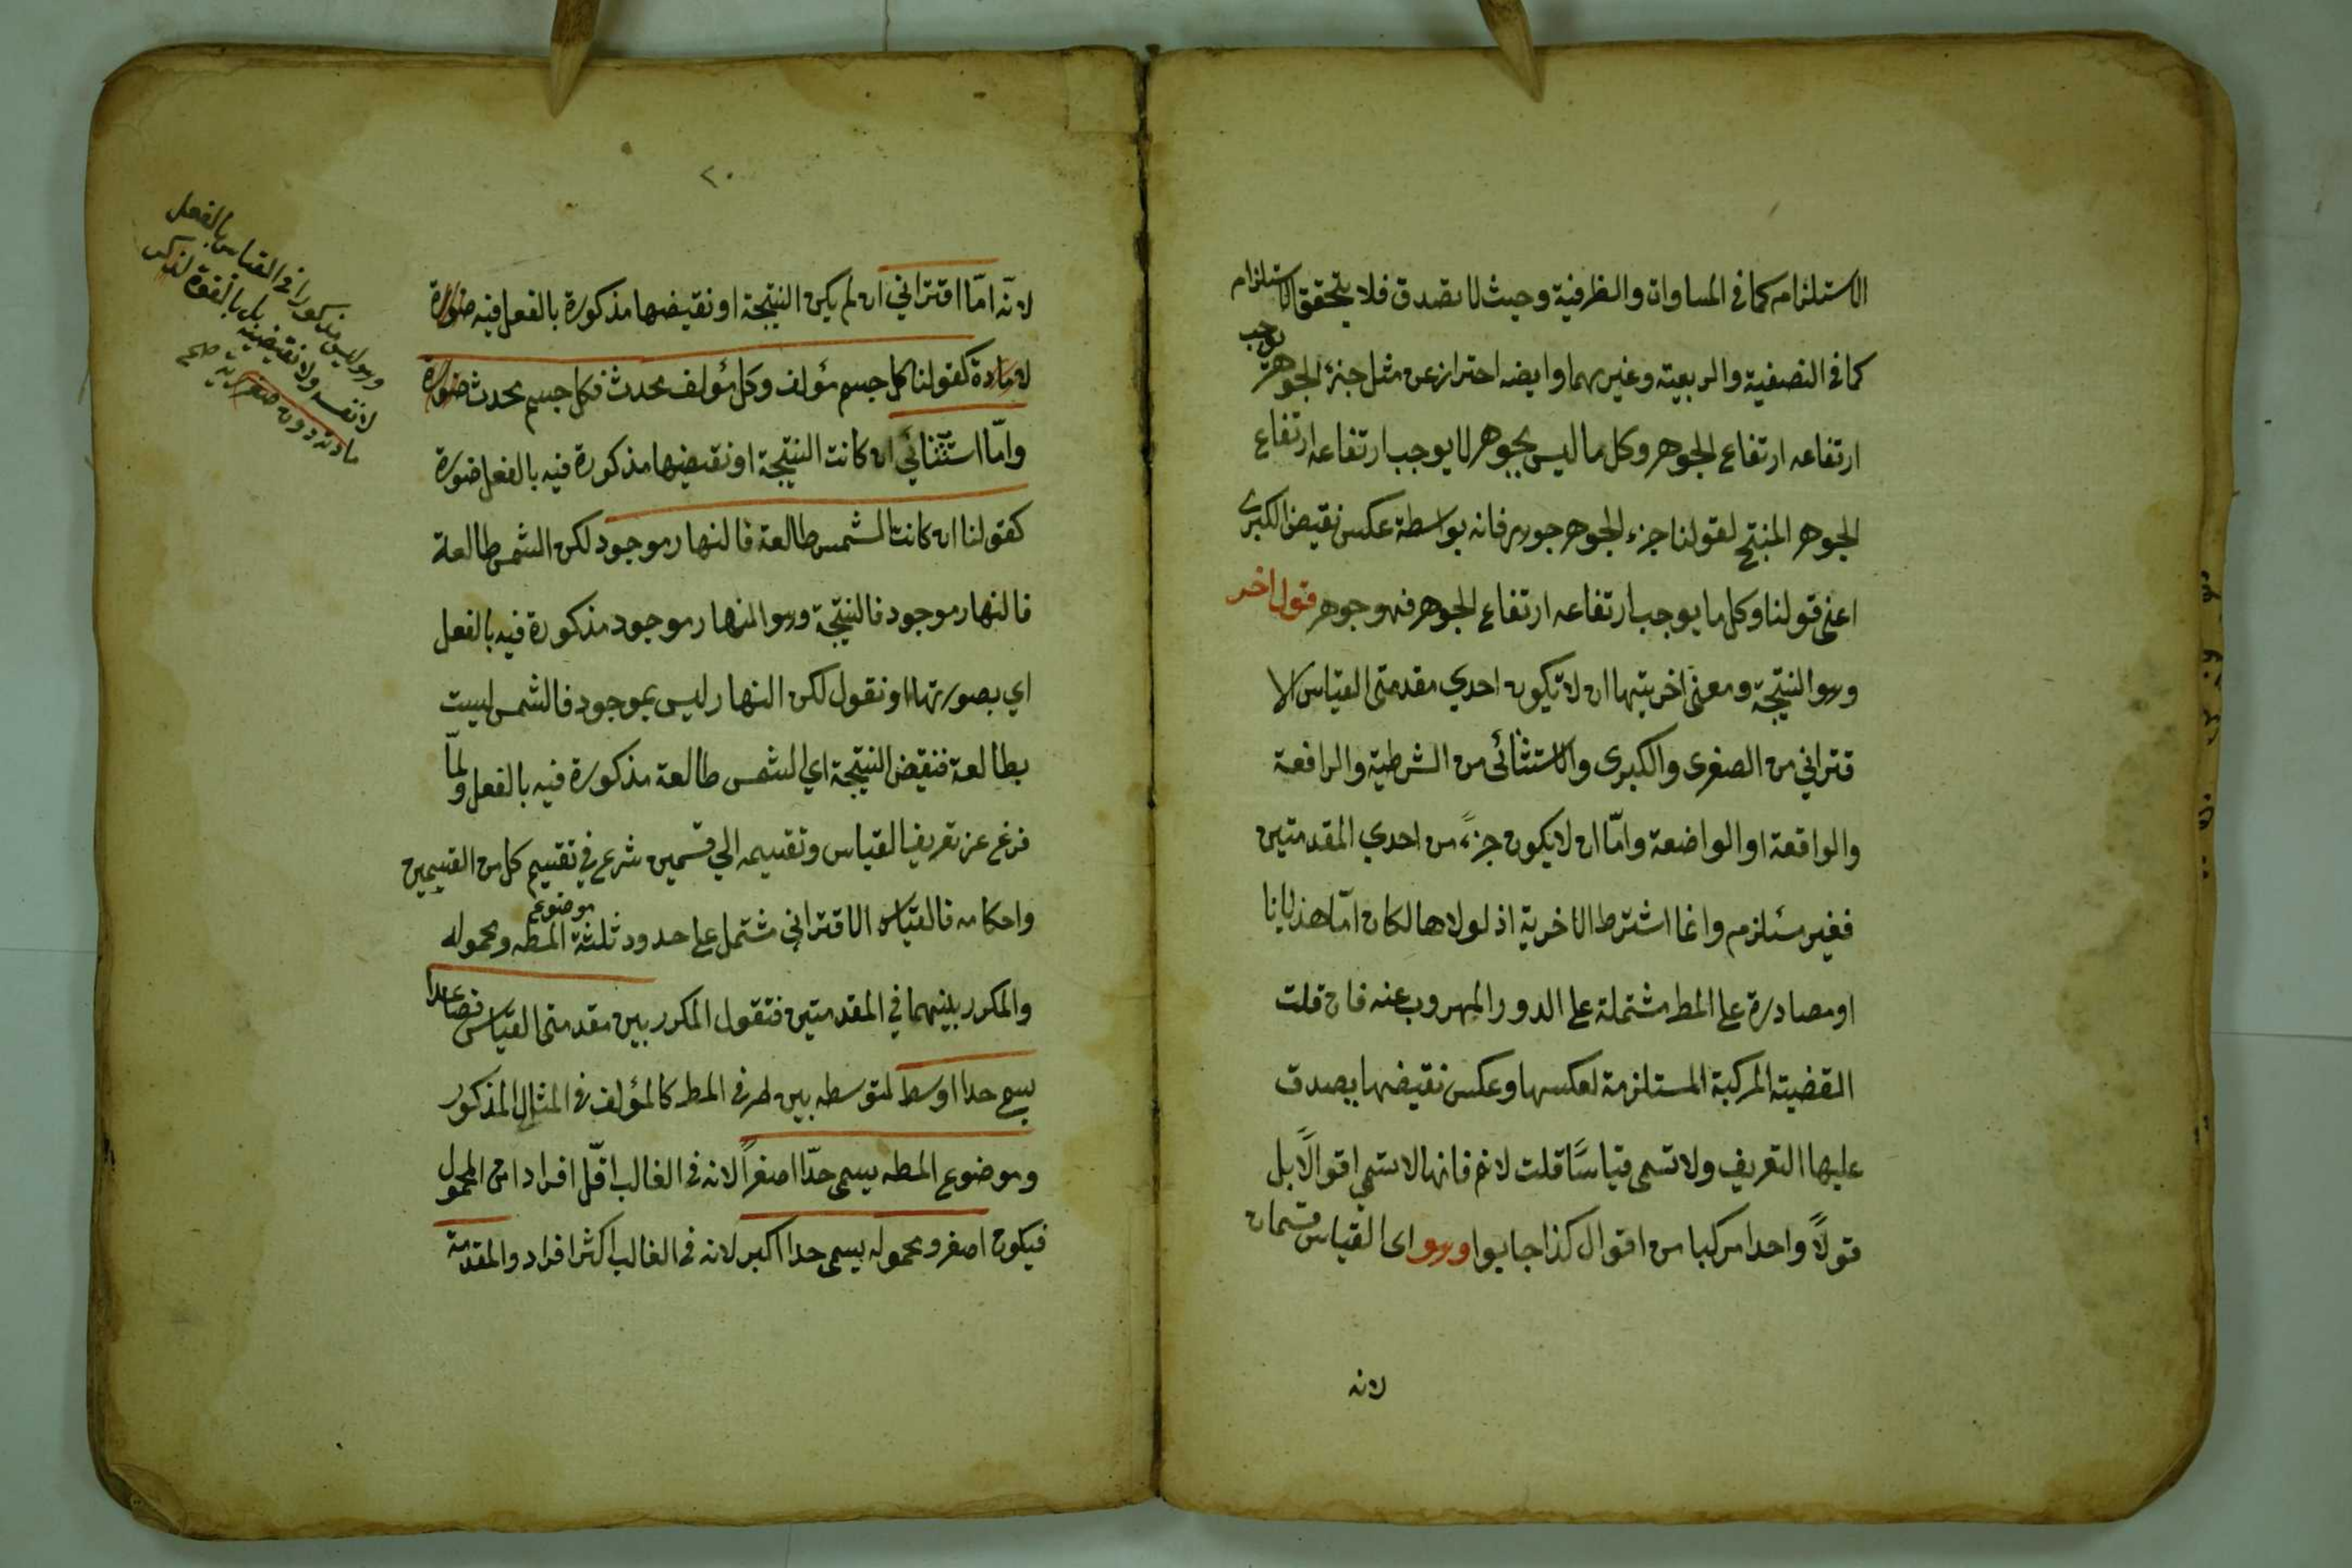 الاستلزام كما في المساوات والظرفية وحيث لا تصدق فلا يتحقق الاستلزام
كما في النصفية والربعية وغيرهما وايضه احتراز عن مثل جزء الجوهر يوجب
ارتفاعه ارتفاع الجوهر وكل ما ليس بجوهر لا يوجب ارتفاعه ارتفاع
الجوهر المنتج لقولنا جزء الجوهر جوهر فانه بواسطة عكس نقيض الكبرى
اعني قولنا وكل ما يوجب ارتفاعه ارتفاع الجوهر فهو جوهر قول اخر
وهو النتيجة ومعنى اخريتها ان لا تكون احدي مقدمتى القياس الا
قتراني من الصغرى والكبرى والاستثنائى من الشرطية والرافعة
والواقعة او الواضعة وامّا ان لا يكون جزءً من احدي المقدمتين
فغير مستلزم وانما اشترط الاخرية اذ لولاها لكان امّا هذيانا
او مصادرة على المط مشتملة على الدور المهروب عنه فان قلت
القضية المركبة المستلزمة لعكسها وعكس نقيضها يصدق
عليها التعريف ولا تسمى قياسًا قلت لا نم فانها لا تسمي اقوالًا بل
قولًا واحدا مركبا من اقوال كذا اجابوا وهو اى القياس قسمان
لانه
٢٠
لانّه امّا اقتراني ان لم يكن النتيجة او نقيضها مذكورة بالفعل فيه صورة
لا مادة كقولنا كل جسم مؤلف وكل مؤلف محدث فكل جسم محدث صورة
وامّا استثنائي ان كانت النتيجة او نقيضها مذكورة فيه بالفعل صورة
كقولنا ان كانت الشمس طالعة فالنهار موجود لكن الشمس طالعة
فالنهار موجود فالنتيجة وهو النهار موجود مذكورة فيه بالفعل
اي بصورتها او نقول لكن النهار ليس بموجود فالشمس ليست
بطالعة فنقيض النتيجة اي الشمس طالعة مذكورة فيه بالفعل ولمّا
فرغ عن تعريف القياس وتقسيمه الي قسمين شرع في تقسيم كل من القسمين
واحكامه فالقياس الاقتراني مشتمل على حدود ثلثة موضوع المطه ومحموله
والمكرر بينهما في المقدمتين فتقول المكرر بين مقدمتى القياس فصاعدا
يسمى حدا اوسط لتوسطه بين طرفى المط كالمؤلف فى المثال المذكور
وموضوع المطه يسمى حدّا اصغراً لانه فى الغالب اقلّ افرادا من المحمول
فيكون اصغر ومحموله يسمى حدا اكبر لانه فى الغالب اكثر افراد والمقدمة
وهو ليس مذكورا في القياس بالفعل
لا نفسه ولا نقيضه بل بالقوة لذكر
مادته دون صورته صح